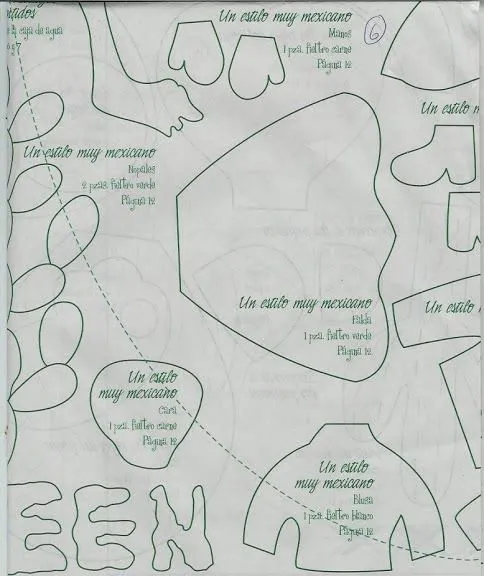 Un estilo muy mexicano
Manos
1 pza. fieltro carne
Página 12
6
caja de agua
Un estilo
Un estilo muy mexicano
Nopales
2 pzas. fieltro verde
Página 12
Un estilo muy mexicano
Falda
1 pza. fieltro verde
Página 12
Un estilo
Un estilo
muy mexicano
Cara
1 pza. fieltro carne
Página 12
Un estilo
muy mexicano
Blusa
1 pza. fieltro blanco
Página 12
EEN